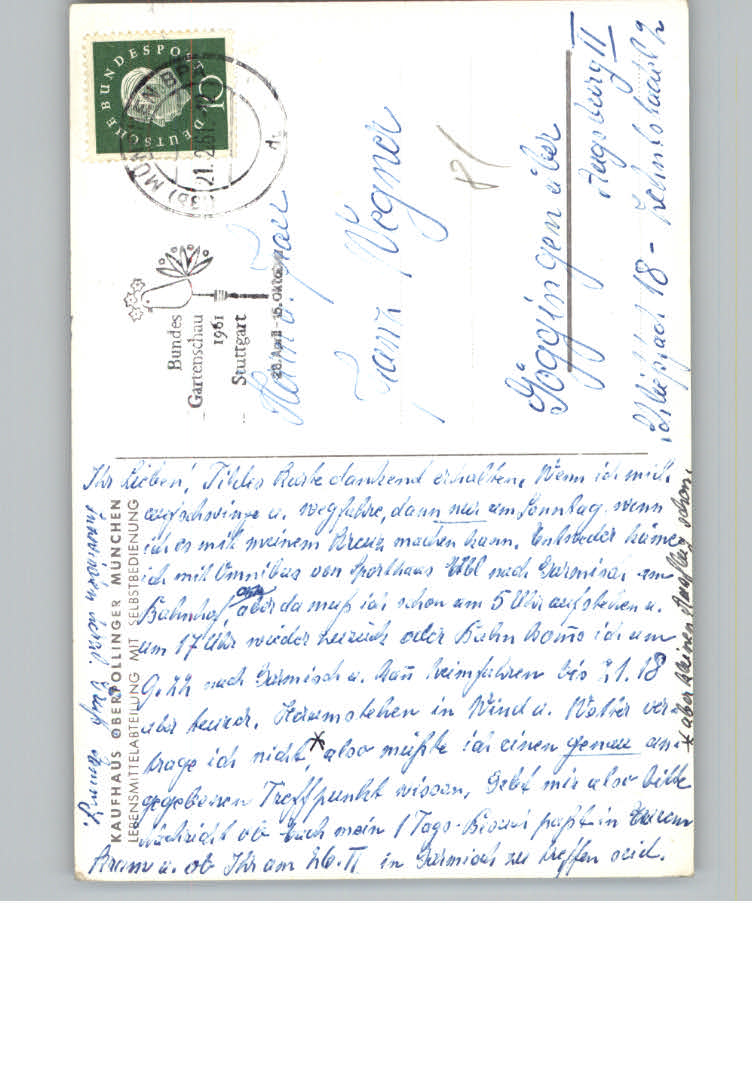 DEUTSCHE BUNDESPOST
10
21.2.61
Bundes
Gartenschau
1961
Stuttgart
28. April - 15. Oktober
Frau
Wegner
Göggingen über
Augsburg II
18 -
KAUFHAUS OBERPOLLINGER MÜNCHEN
LEBENSMITTELABTEILUNG MIT SELBSTBEDIENUNG
Ihr Lieben! Karte dankend erhalten. Wenn ich mich
aufschwinge u. wegfahre, dann nur am Sonntag, wenn
ich es mit meinem Kreuz machen kann. Entweder käme
ich mit Omnibus von Sporthaus nach Garmisch am
Bahnhof, aber da muß ich schon um 5 Uhr aufstehen u.
um 17 Uhr wieder zurück oder Bahn komme ich um
9.22 nach Garmisch u. kann heimfahren bis 21.18
aber teurer. Herumstehen in Wind u. Wetter ver-
trage ich nicht,* also müßte ich einen genau an-
gegebenen Treffpunkt wissen. Gebt mir also bitte
Nachricht ob Euch mein 1 Tags-Besuch paßt in
u. ob Ihr am 26. II. in Garmisch zu treffen seid.
* aber kleinen Ausflug schon.